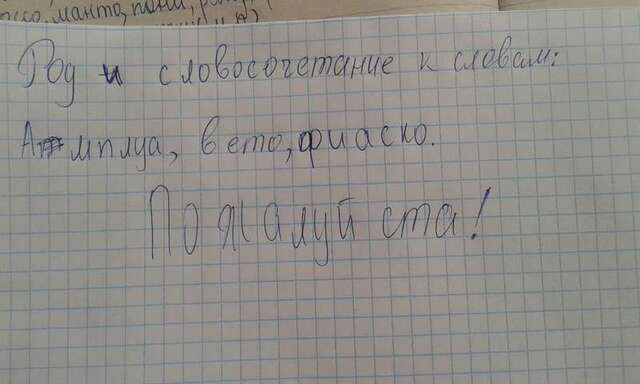 манто, пони,
Род и словосочетание к словам:
Амплуа, вето, фиаско.
Пожалуйста!